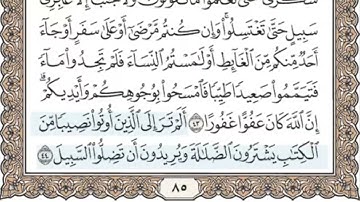 سُكَٰرَىٰ حَتَّىٰ تَعْلَمُوا۟ مَا تَقُولُونَ وَلَا جُنُبًا إِلَّا عَابِرِى
سَبِيلٍ حَتَّىٰ تَغْتَسِلُوا۟ ۚ وَإِن كُنتُم مَّرْضَىٰٓ أَوْ عَلَىٰ سَفَرٍ أَوْ جَآءَ
أَحَدٌ مِّنكُم مِّنَ ٱلْغَآئِطِ أَوْ لَٰمَسْتُمُ ٱلنِّسَآءَ فَلَمْ تَجِدُوا۟ مَآءً
فَتَيَمَّمُوا۟ صَعِيدًا طَيِّبًا فَٱمْسَحُوا۟ بِوُجُوهِكُمْ وَأَيْدِيكُمْ ۗ
إِنَّ ٱللَّهَ كَانَ عَفُوًّا غَفُورًا ٤٣ أَلَمْ تَرَ إِلَى ٱلَّذِينَ أُوتُوا۟ نَصِيبًا مِّنَ
ٱلْكِتَٰبِ يَشْتَرُونَ ٱلضَّلَٰلَةَ وَيُرِيدُونَ أَن تَضِلُّوا۟ ٱلسَّبِيلَ ٤٤
٨٥